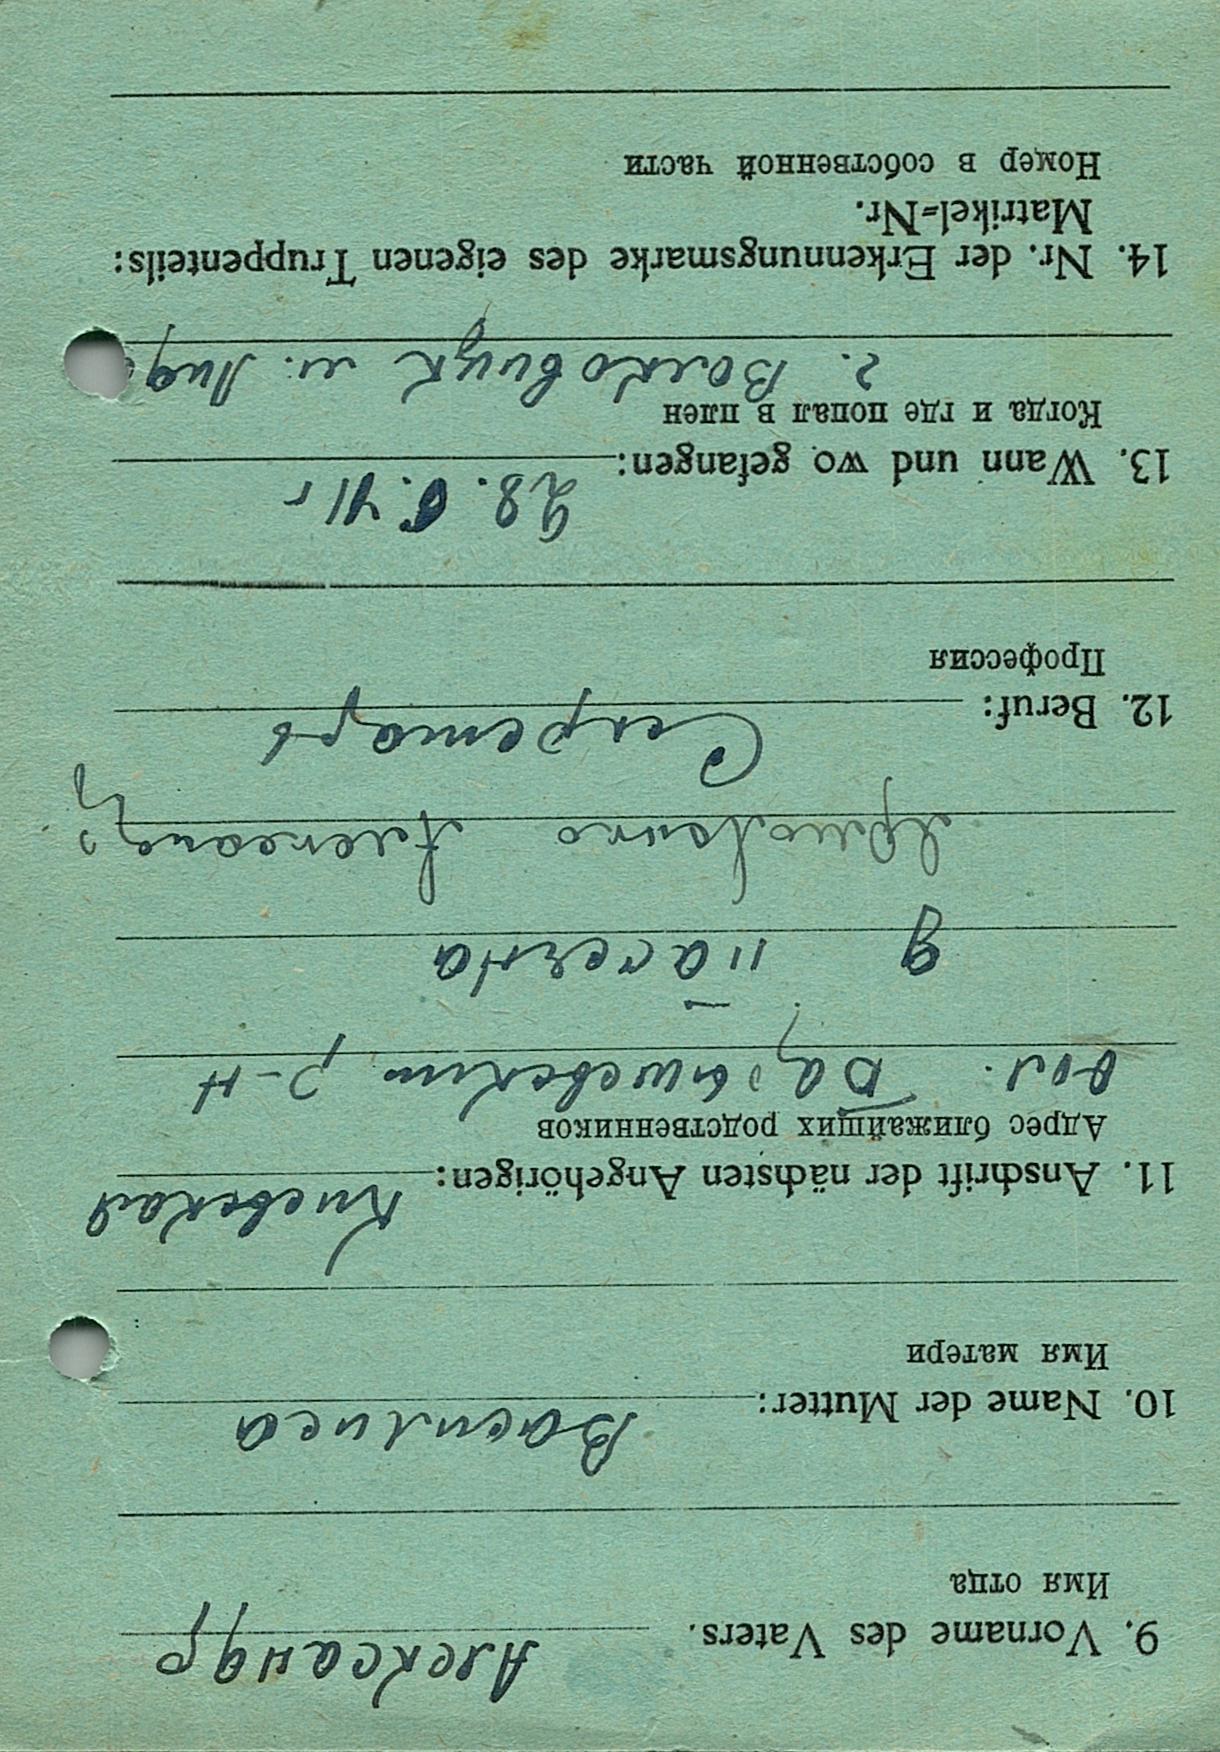 9. Vorname des Vaters. Александр
Имя отца
10. Name der Mutter: Василиса
Имя матери
11. Anschrift der nächsten Angehörigen: Киевская
Адрес ближайших родственников
обл. р-н
д
Александр
12. Beruf: Секретарь
Профессия
28. 6. 41 г
13. Wann und wo gefangen:
Когда и где попал в плен
г. Волковицк м.
14. Nr. der Erkennungsmarke des eigenen Truppenteils:
Matrikel-Nr.
Номер в собственной части